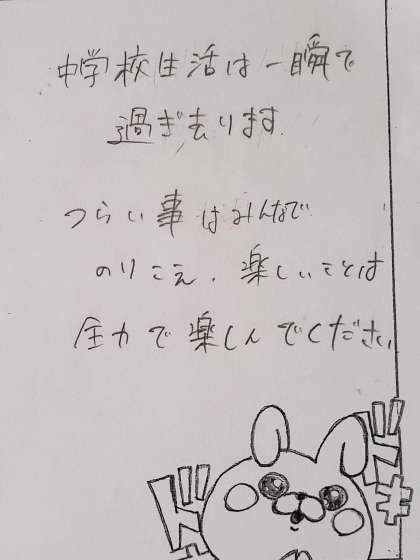 中学校生活は一瞬で
過ぎ去ります.
つらい事はみんなで
のりこえ、楽しいことは
全力で楽しんでください